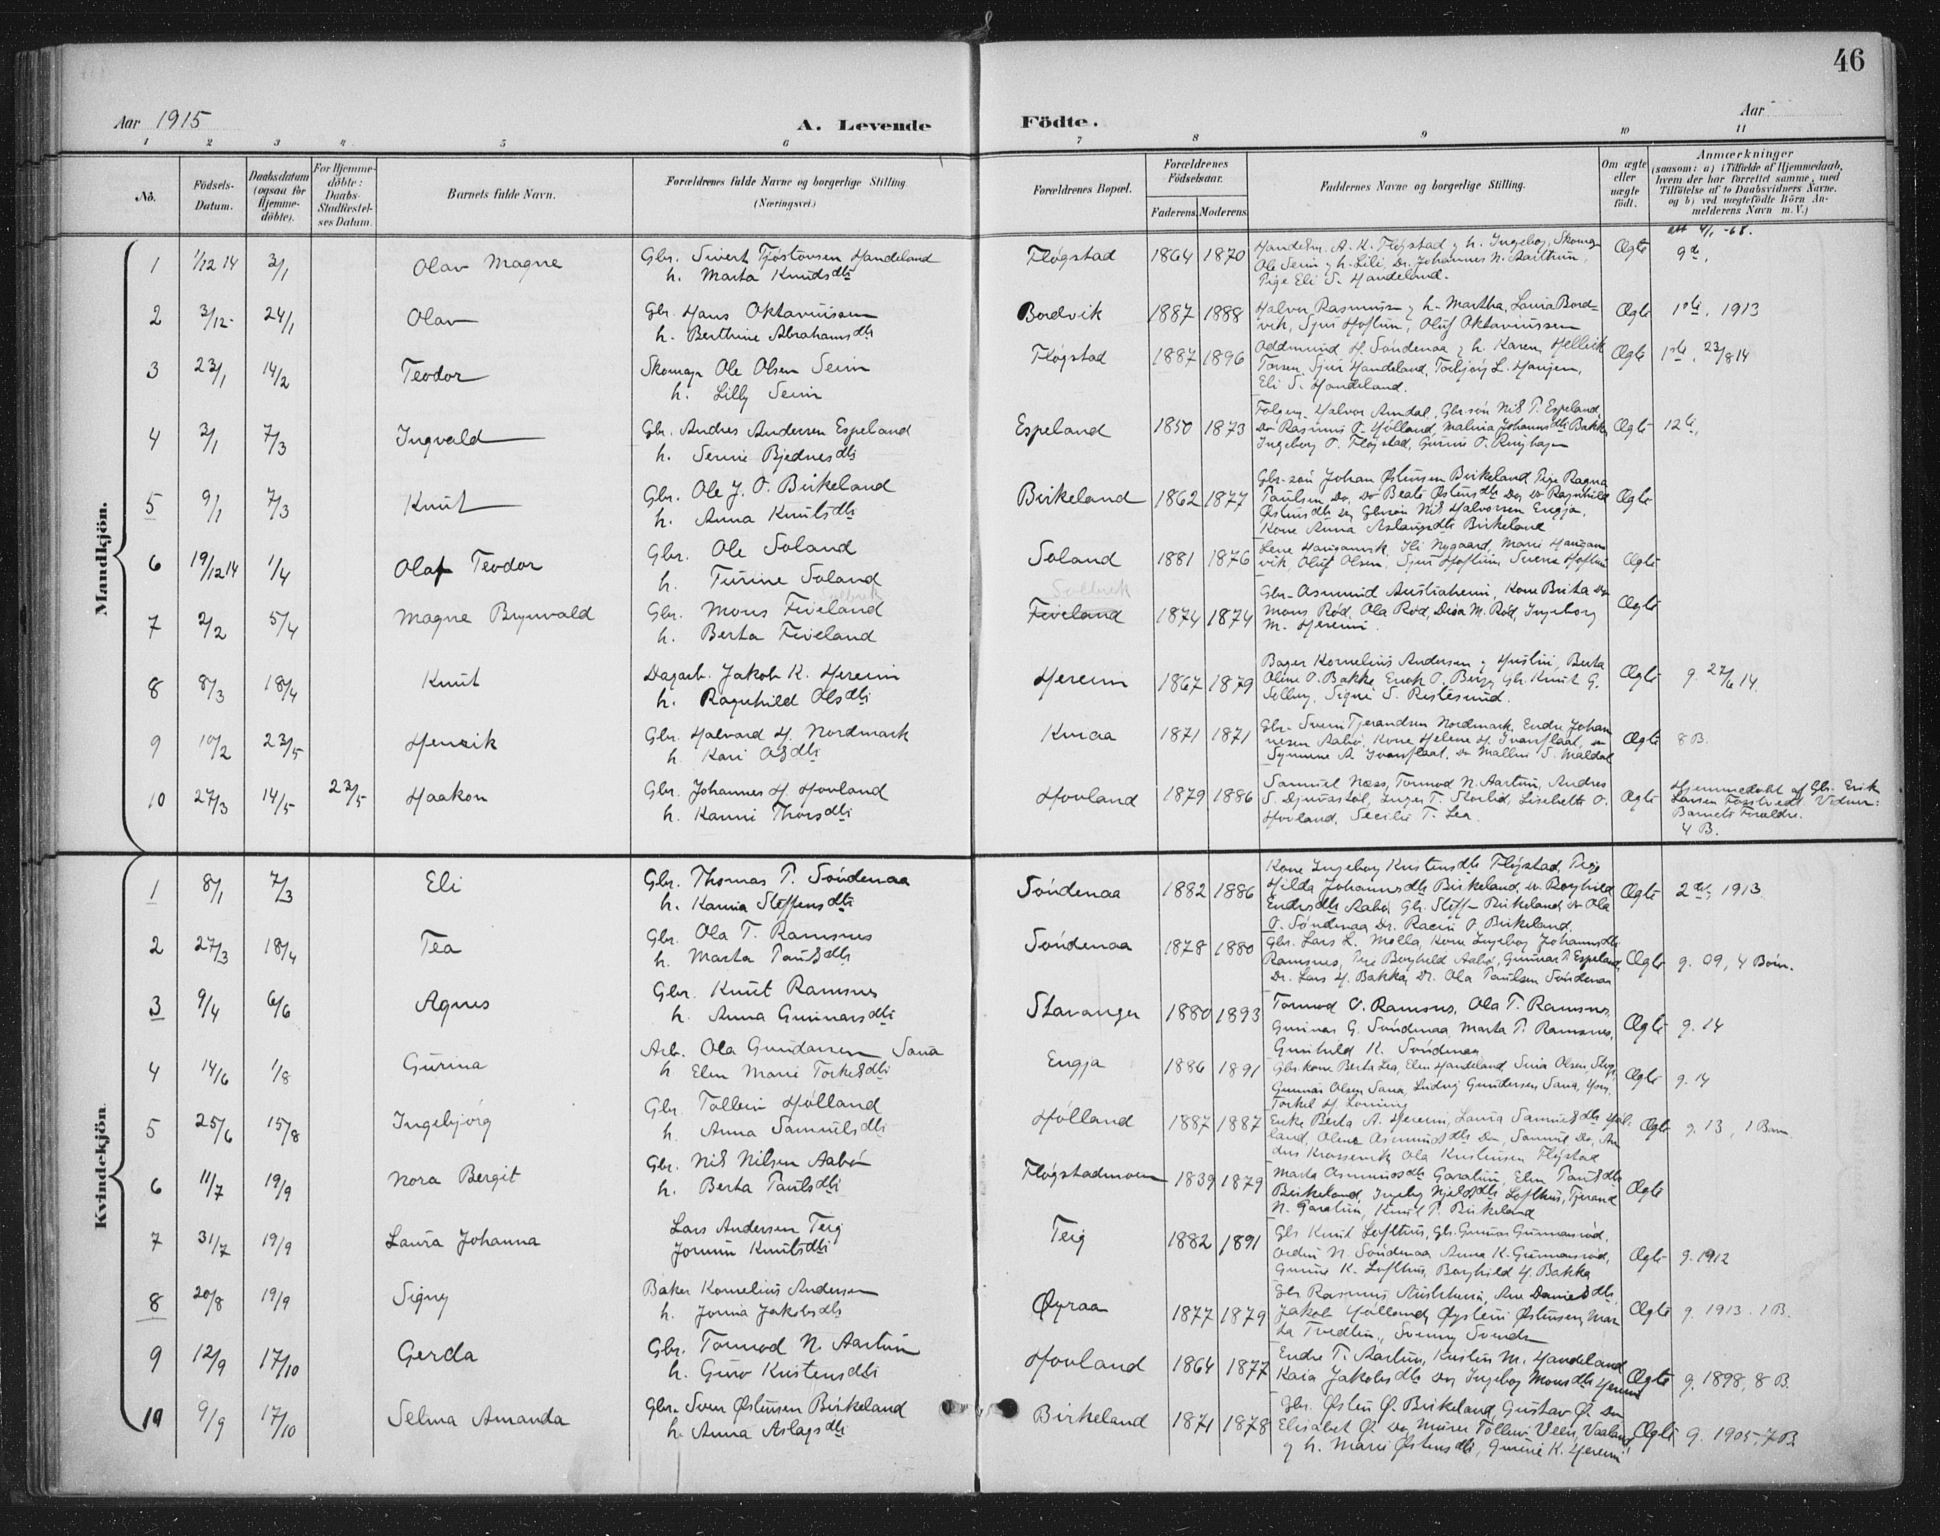 46
Aar 1915
A. Levende
Födte.
Aar
1 2 3 4 5 6 7 8 9 10 11
No.
Födsels-Datum.
Daabsdatum (ogsaa for Hjemme-döbte).
For Hjemme-döbte: Daabs-Stadfæstel-ses Datum.
Barnets fulde Navn.
Forældrenes fulde Navne og borgerlige Stilling. (Næringsvei.)
Forældrenes Bopæl.
Forældrenes Födselsaar.
Faderens. Moderens.
Faddernes Navne og borgerlige Stilling.
Om ægte eller uægte födt.
Anmærkninger
(saasom: a) i Tilfælde af Hjemmedaab, hvem der har forrettet samme, med Tilföielse af to Daabsvidners Navne, og b) ved uægtefödte Börn An-melderens Navn m. V.)
Mandkjön.
1 1/12 14 3/1 Olav Magne Gbr. Sivert Tjøstovsen Handeland
h. Marta Knudsdtr
Fløgstad 1864 1870 Handelsm. A. K. Fløgstad g h. Ingebor, Skomgr
Ole Seim g h. Lili, Dr. Johannes N. Aartun,
Pige Eli S. Handeland. Ægte 9d.
2 3/12 24/1 Olav Gbr. Hans Oktaviussen
h. Berthine Abrahamsdtr
Bordvik 1887 1888 Halvor Rasmusen g h. Martha, Laura Bord-
vik, Sjur Hoftun, Oluf Oktaviussen Ægte 1ste, 1913
3 23/1 14/2 Teodor Skomagr Ole Olsen Seim
h. Lilly Seim
Fløgstad 1887 1896 Oddmund H. Söndenaa g h. Karen, Hellvik
Torsen, Sjur Handeland, Torbjörg L. Haugen,
Eli S. Handeland. Ægte 1ste, 23/8 14
4 3/1 7/3 Ingvald Gbr. Andres Andersen Espeland
h. Serine Bjednesdtr
Espeland 1850 1873 Halvor Amdal, Gbr.sön Nils T. Espeland,
Do Rasmus O. Hölland, Malina Johannsdtr Bakka
Ingeborg O. Fløgstad, Gurine O. Ægte 12te,
5 9/1 7/3 Knut Gbr. Ole J. O. Birkeland
h. Anna Knutsdtr
Birkeland 1862 1877 Gbr.sön Johan Østensen Birkeland Pige Ragna
Paulsen Do, Do Beate Østensdtr Do, Do Ragnhild
Østensdtr Do, Gbrsön Nils Halvorsen Engja,
Kone Anna Aslaugsdtr Birkeland Ægte
6 19/12 14 1/4 Olaf Teodor Gbr. Ole Soland
h. Turine Soland
Soland 1881 1876 Lene Haugamvik, Ili Nygaard, Marie Haugam
vik, Oluf Olsen, Sjur Hoftun, Sverre Hoftun Ægte
7 2/2 5/4 Magne Brynvald Gbr. Mons Feveland
Solbrik
h. Berta Feveland
Solbrik
Feveland 1874 1874 Gbr. Asmund Austraheim, Kone Brita Do
Mons Röd, Ola Röd, Disa M. Röd, Ingeborg
M. Hereim. Ægte
8 8/3 18/4 Knut Dagarb. Jakob K. Hereim
h. Ragnhild Olsdtr
Hereim 1867 1879 Bager Kornelius Andersen g Hustru, Berta
Oline O. Bakke, Enok O. Berge, Gbr. Knut G.
Solberg, Signe S. Ristesund. Ægte g. 27/6 14.
9 10/2 23/5 Henrik Gbr. Halvard H. Nordmark
h. Kari Olsdtr
Kvaa 1871 1871 Gbr. Sven Tjerandsen Nordmark, Endre Johan
nesen Aabö, Kone Helene H. Ivarsflaat, Do
Synnöve A. Ivarsflaat, Do Malline S. Maldal Ægte 8 B.
10 27/3 14/5 23/5 Haakon Gbr. Johannes H. Hovland
h. Kanni Thorsdtr
Hovland 1879 1886 Samuel Næss, Tormod N. Aartun, Andres
S. Djuvastöl, Inger T. Storlid, Lisabeth O.
Hovland, Secilie T. Lea. Ægte Hjemmedøbt af Gbr. Erik
Larsen Fosstvedt. Vidner:
Barnets Forældre.
4 B.
Kvindekjön.
1 8/1 7/3 Eli Gbr. Thomas P. Söndenaa
h. Kanna Steffensdtr
Söndenaa 1882 1886 Kone Ingeborg Kristensdtr Fløgstad, Pige
Hilda Johannsdtr Birkeland, Do Borghild
Endresdtr Aabö, Gbr. Steff. Birkeland, Do Ola
O. Söndenaa, Dr. Racin O. Birkeland. Ægte 2det, 1913.
2 27/3 18/4 Tea Gbr. Ola T. Ramsnes
h. Marta Paulsdtr
Söndenaa 1878 1880 Gbr. Lars L. Molla, Kone Ingebor Johannsdtr
Ramsnes, Pige Borghild Aabö, Gunnar P. Espeland,
Dr. Lars H. Bakka, Dr. Ola Paulsen Söndenaa Ægte g. 09, 4 Börn.
3 9/4 6/6 Agnes Gbr. Knut Ramsnes
h. Anna Gunnarsdtr
Stavanger 1880 1893 Tormod O. Ramsnes, Ola T. Ramsnes,
Gunnar G. Söndenaa, Marta P. Ramsnes,
Gunhild K. Söndenaa Ægte g. 14
4 14/6 1/8 Gurina Arb. Ola Gundersen Sana
h. Elen Marie Torkelsdtr
Engja 1886 1891 Gbr.kone Berta Lea, Elen Handeland, Sina Olsen
Gunnar Olsen Sana, Ludvig Gundersen Sana,
Torkel H. Ægte g. 14
5 25/6 15/8 Ingebjörg Gbr. Tollein Hölland
h. Anna Samuelsdtr
Hölland 1887 1887 Enke Berta A. Hereim, Laura Samuelsdtr Höl-
land, Oline Asmundsdtr Do, Samuel Do, An
dres Krossevik, Ola Kristensen Fløgstad Ægte g. 13, 1 Barn.
6 11/7 19/9 Nora Bergit Gbr. Nils Nilsen Aabö
h. Berta Paulsdtr
Fløgstadmoen 1839 1879 Marta Asmundsdtr Garatun, Elen Paulsdtr
Birkeland, Ingebor Njelsdtr Lofthus, Tjerand
N. Garatun, Knut P. Birkeland Ægte
7 31/7 19/9 Laura Johanna Lars Andersen Teig
Jorunn Knutsdtr
Teig 1882 1891 Gbr Knut Lofthus, Gbr. Gunnar Gunnarsröd,
N. Söndenaa, Anna K. Gunnarsröd,
Gurine K. Lofthus, Borghild H. Bakka Ægte g. 1912
8 20/8 19/9 Signy Baker Kornelius Andersen
h. Jonna Jakobsdtr
Øyraa 1877 1879 Gbr Rasmus Austreheim, Ane Danielsdtr,
Jakob Hölland, Øystein Østensen, Mar
ta Tvedten, Svenny Svends Ægte g. 1913. 1 B.
9 12/9 17/10 Gerda Gbr. Tormod N. Aartun
h. Guro Kristensdtr
Hovland 1864 1877 Endre T. Aartun, Kristen M. Handeland
Kaia Jakobsdtr Do, Ingebor Monsdtr Hereim Ægte g. 1898, 8 B.
10 9/9 17/10 Selma Amanda Gbr. Sven Østensen Birkeland
h. Anna Aslagsdtr
Birkeland 1871 1878 Gbr. Østen Ø. Birkeland, Gustav Ø. Do
Elisabet Ø. Do, Murer Tollein Veen, Vaaland
g h. Marie Østensdtr, Gurine K. Hereim Ægte g. 1905, 7 B.